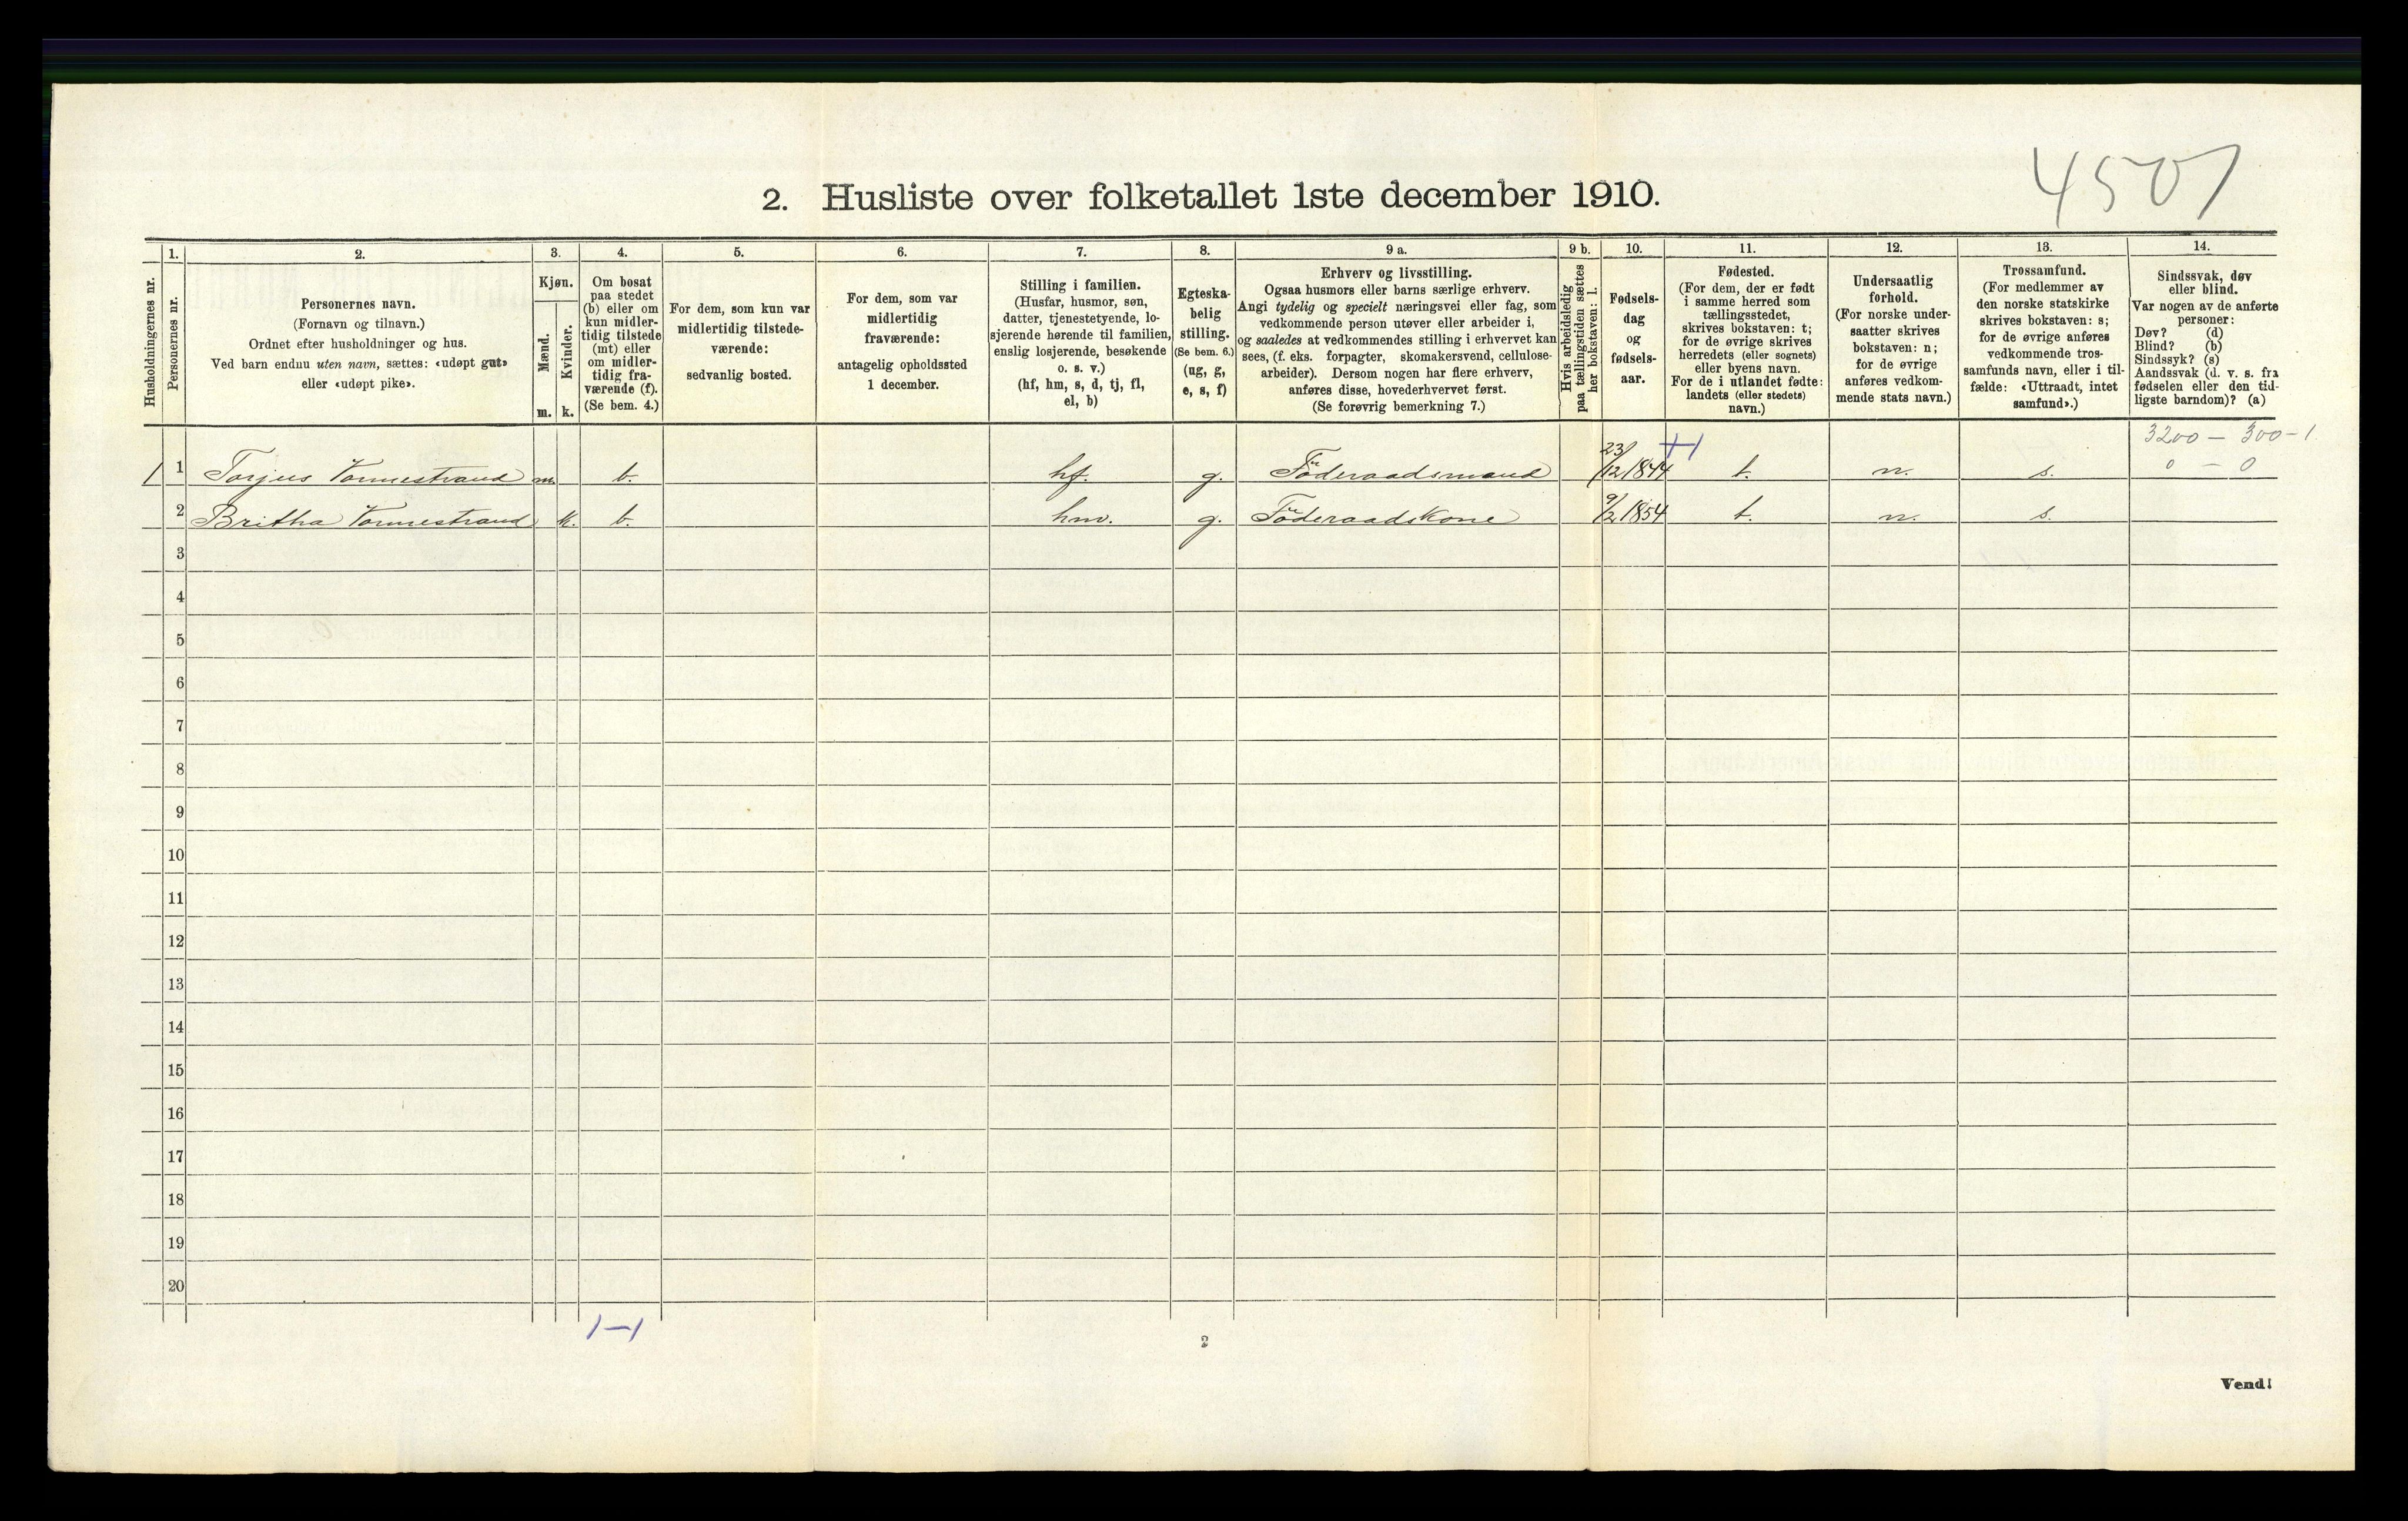 4507
2. Husliste over folketallet 1ste december 1910.
Husholdningernes nr.
1.
Personernes nr.
2.
Personernes navn.
(Fornavn og tilnavn.)
Ordnet efter husholdninger og hus.
Ved barn endnu uten navn, sættes: «udøpt gut»
eller «udøpt pike».
3.
Kjøn.
Mænd.
Kvinder.
m. k.
4.
Om bosat
paa stedet
(b) eller om
kun midler-
tidig tilstede
(mt) eller
om midler-
tidig fra-
værende (f).
(Se bem. 4.)
5.
For dem, som kun var
midlertidig tilstede-
værende:
sedvanlig bosted.
6.
For dem, som var
midlertidig
fraværende:
antagelig opholdssted
1 december.
7.
Stilling i familien.
(Husfar, husmor, søn,
datter, tjenestetyende, lo-
sjerende hørende til familien,
enslig losjerende, besøkende
o. s. v.)
(hf, hm, s, d, tj, fl,
el, b)
8.
Egteska-
belig
stilling.
(Se bem. 6.)
(ug, g,
e, s, f)
9 a.
Erhverv og livsstilling.
Ogsaa husmors eller barns særlige erhverv.
Angi tydelig og specielt næringsvei eller fag, som
vedkommende person utøver eller arbeider i,
og saaledes at vedkommendes stilling i erhvervet kan
sees, (f. eks. forpagter, skomakersvend, cellulose-
arbeider). Dersom nogen har flere erhverv,
anføres disse, hovederhvervet først.
(Se forøvrig bemerkning 7.)
9 b.
Hvis arbeidsledig
paa tællingstiden sættes
her bokstaven: l.
10.
Fødsels-
dag
og
fødsels-
aar.
11.
Fødested.
(For dem, der er født
i samme herred som
tællingsstedet,
skrives bokstaven: t;
for de øvrige skrives
herredets (eller sognets)
eller byens navn.
For de i utlandet fødte:
landets (eller stedets)
navn.)
12.
Undersaatlig
forhold.
(For norske under-
saatter skrives
bokstaven: n;
for de øvrige
anføres vedkom-
mende stats navn.)
13.
Trossamfund.
(For medlemmer av
den norske statskirke
skrives bokstaven: s;
for de øvrige anføres
vedkommende tros-
samfunds navn, eller i til-
fælde: «Uttraadt, intet
samfund».)
14.
Sindssvak, døv
eller blind.
Var nogen av de anførte
personer:
Døv? (d)
Blind? (b)
Sindssyk? (s)
Aandssvak (d. v. s. fra
fødselen eller den tid-
ligste barndom)? (a)
3200 — 300 - 1
0 — 0
1 1 Torjus Vonnestrand m. b. hf. g. Føderaadsmand 23/12 1844 t. n. s.
2 Britha Vonnestrand k. b. hm. g. Føderaadskone 9/2 1854 t. n. s.
3
4
5
6
7
8
9
10
11
12
13
14
15
16
17
18
19
20
1—1
2
Vend!